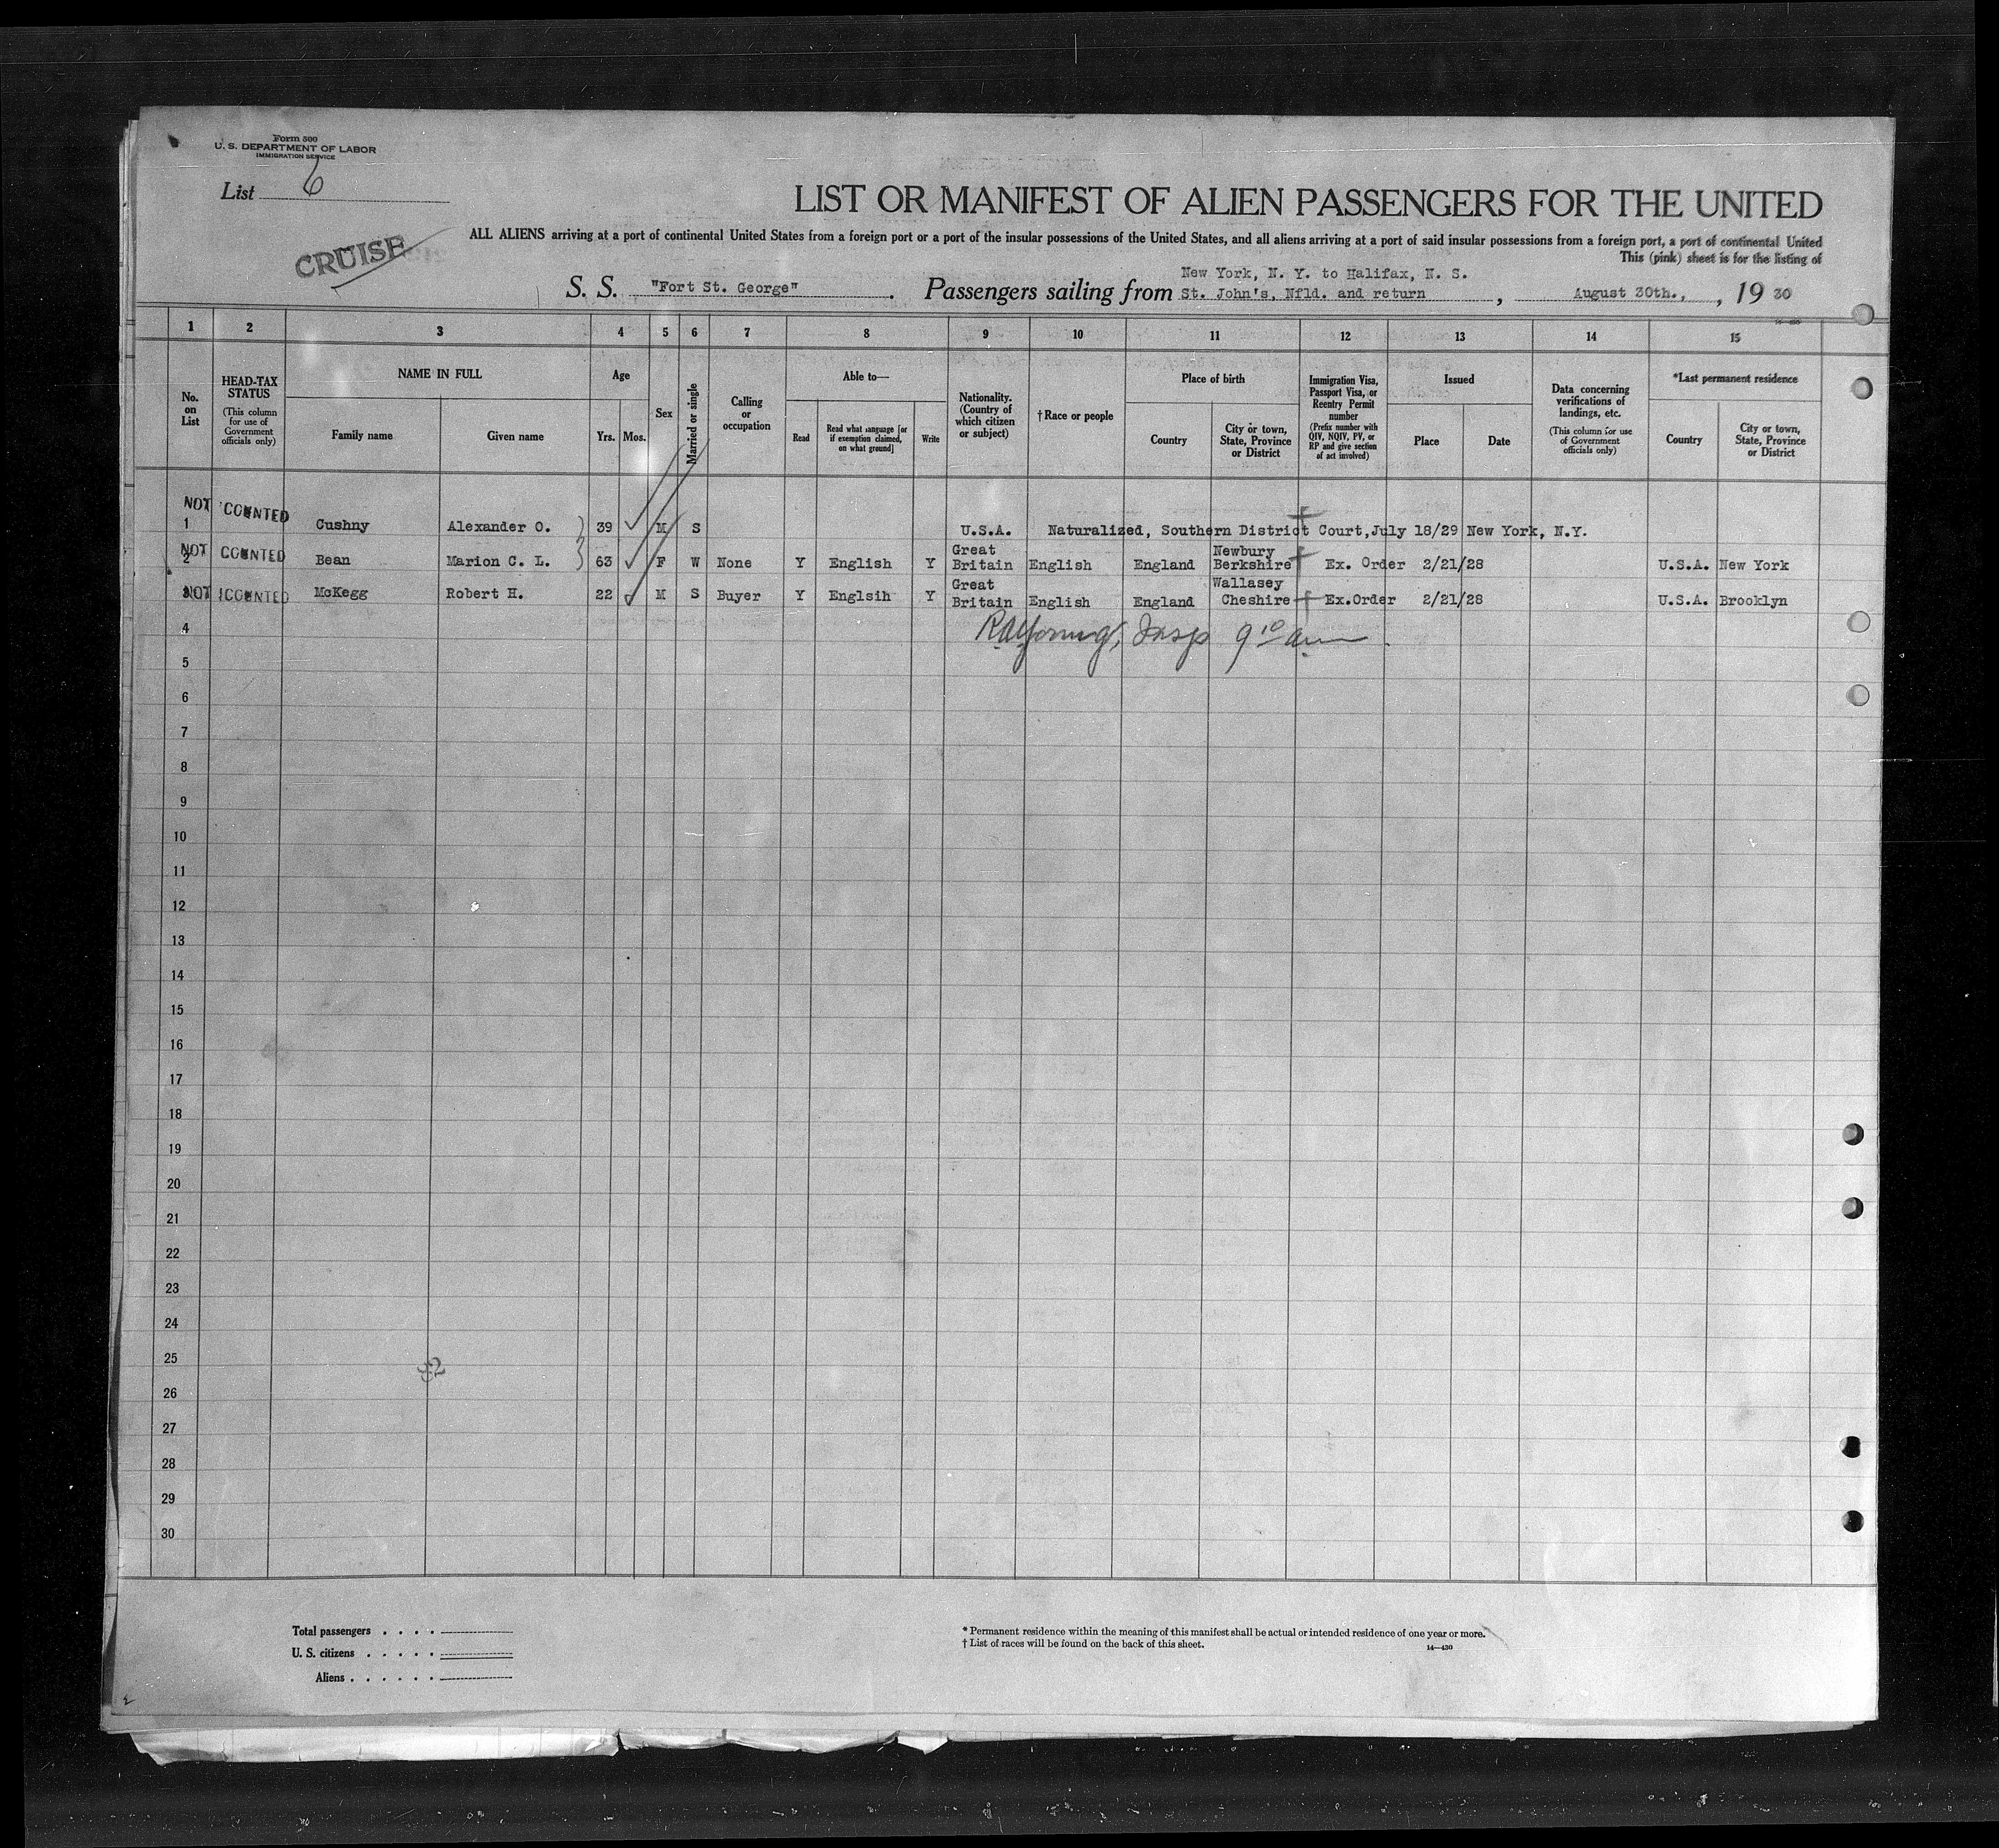 Form 500
U. S. DEPARTMENT OF LABOR
IMMIGRATION SERVICE
List 6
LIST OR MANIFEST OF ALIEN PASSENGERS FOR THE UNITED
CRUISE
ALL ALIENS arriving at a port of continental United States from a foreign port or a port of the insular possessions of the United States, and all aliens arriving at a port of said insular possessions from a foreign port, a port of continental United
This (pink) sheet is for the listing of
New York, N. Y. to Halifax, N. S.
S. S. "Fort St. George" . Passengers sailing from St. John's, Nfld. and return , August 30th., , 19 30
1 2 3 4 5 6 7 8 9 10 11 12 13 14 15
No. on List
HEAD-TAX STATUS (This column for use of Government officials only)
NAME IN FULL
Family name
Given name
Age
Yrs. Mos.
Sex
Married or single
Calling or occupation
Able to—
Read
Read what language [or if exemption claimed, on what ground]
Write
Nationality. (Country of which citizen or subject)
†Race or people
Place of birth
Country
City or town, State, Province or District
Immigration Visa, Passport Visa, or Reentry Permit number (Prefix number with QIV, NQIV, PV, or RP and give section of act involved)
Issued
Place
Date
Data concerning verifications of landings, etc. (This column for use of Government officials only)
*Last permanent residence
Country
City or town, State, Province or District
NOT COUNTED
1 Cushny Alexander O. 39 M S U.S.A. Naturalized, Southern District Court,July 18/29 New York, N.Y.
NOT COUNTED
2 Bean Marion C. L. 63 F W None Y English Y Great Britain English England Newbury Berkshire Ex. Order 2/21/28 U.S.A. New York
NOT COUNTED
3 McKegg Robert H. 22 M S Buyer Y Englsih Y Great Britain English England Wallasey Cheshire Ex.Order 2/21/28 U.S.A. Brooklyn
4 Insp 9 10 am
5
6
7
8
9
10
11
12
13
14
15
16
17
18
19
20
21
22
23
24
25
26
27
28
29
30
Total passengers . . . .
U. S. citizens . . . . .
Aliens . . . . . .
* Permanent residence within the meaning of this manifest shall be actual or intended residence of one year or more.
† List of races will be found on the back of this sheet.
14—430